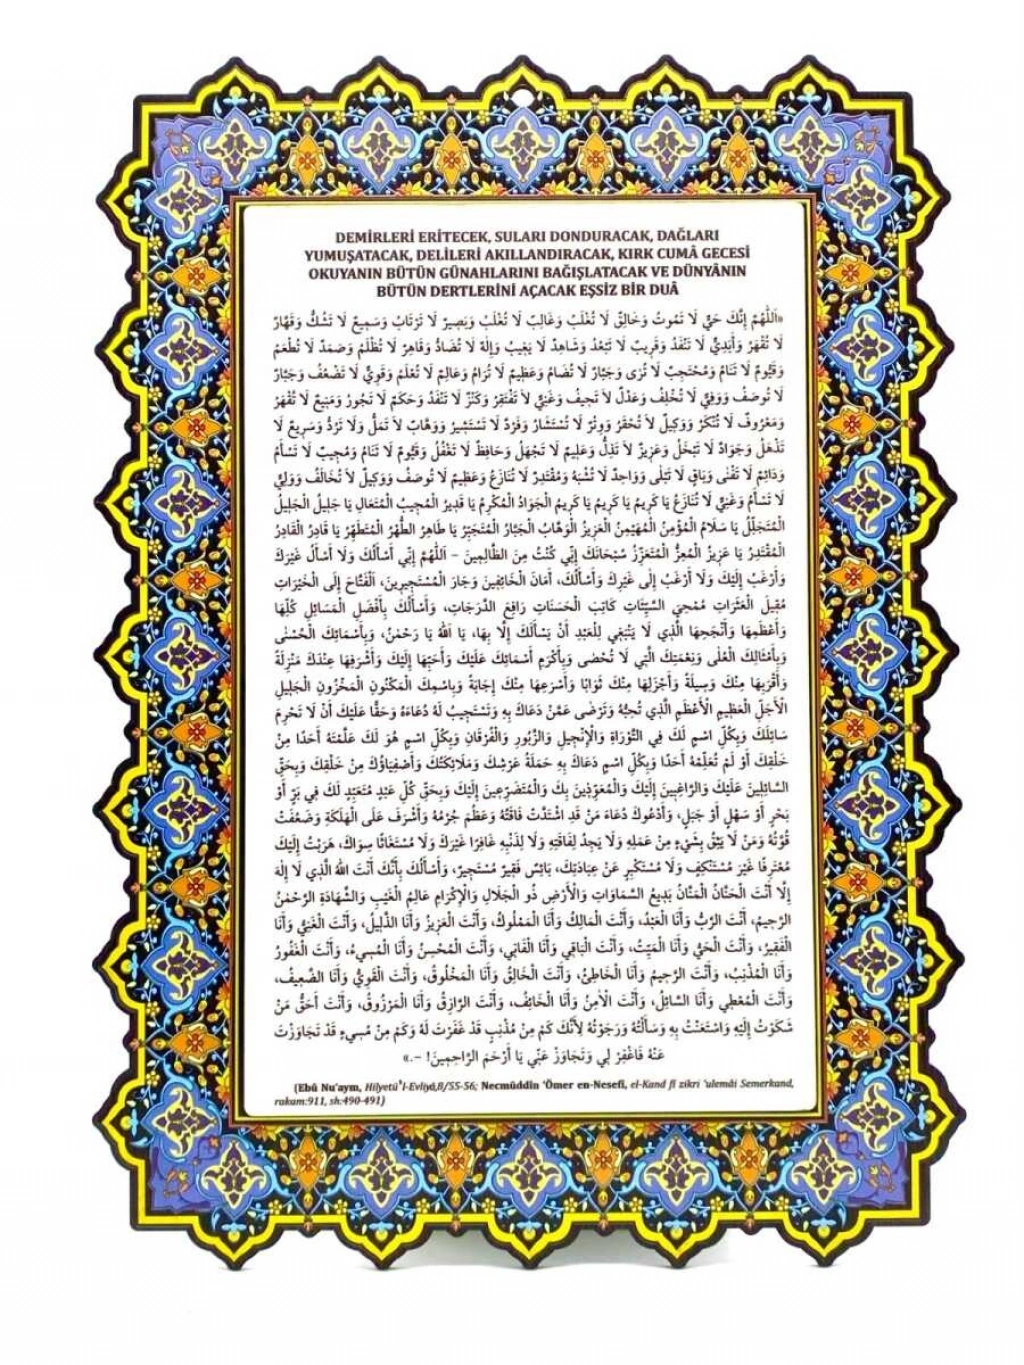 DEMİRLERİ ERİTECEK, SULARI DONDURACAK, DAĞLARI
YUMUŞATACAK, DELİLERİ AKILLANDIRACAK, KIRK CUMÂ GECESİ
OKUYANIN BÜTÜN GÜNAHLARINI BAĞIŞLATACAK VE DÜNYÂNIN
BÜTÜN DERTLERİNİ AÇACAK EŞSİZ BİR DUÂ
«اَللّٰهُمَّ إِنَّكَ حَيٌّ لَا تَمُوتُ وَخَالِقٌ لَا تُغْلَبُ وَغَالِبٌ لَا تُغْلَبُ وَبَصِيرٌ لَا تَرْتَابُ وَسَمِيعٌ لَا تَشُكُّ وَقَهَّارٌ
لَا تُقْهَرُ وَأَبَدِيٌّ لَا تَنْفَدُ وَقَرِيبٌ لَا تَبْعُدُ وَشَاهِدٌ لَا يَغِيبُ وَإِلٰهٌ لَا تُضَادُّ وَقَاهِرٌ لَا تُظْلَمُ وَصَمَدٌ لَا تُطْعَمُ
وَقَيُّومٌ لَا تَنَامُ وَمُحْتَجِبٌ لَا تُرَى وَجَبَّارٌ لَا تُضَامُ وَعَظِيمٌ لَا تُرَامُ وَعَالِمٌ لَا تُعْلَمُ وَقَوِيٌّ لَا تَضْعُفُ وَجَبَّارٌ
لَا تُوصَفُ وَوَفِيٌّ لَا تُخْلِفُ وَعَدْلٌ لَا تَحِيفُ وَغَنِيٌّ لَا تَفْتَقِرُ وَكَنْزٌ لَا تَنْفَدُ وَحَكَمٌ لَا تَجُورُ وَمَنِيعٌ لَا تُقْهَرُ
وَمَعْرُوفٌ لَا تُنْكَرُ وَوَكِيلٌ لَا تُحْقَرُ وَوِتْرٌ لَا تُسْتَشَارُ وَفَرْدٌ لَا تَسْتَشِيرُ وَوَهَّابٌ لَا تَمَلُّ وَلَا تَرُدُّ وَسَرِيعٌ لَا
تَذْهَلُ وَجَوَادٌ لَا تَبْخَلُ وَعَزِيزٌ لَا تَذِلُّ وَعَلِيمٌ لَا تَجْهَلُ وَحَافِظٌ لَا تَغْفُلُ وَقَيُّومٌ لَا تَنَامُ وَمُجِيبٌ لَا تَسْأَمُ
وَدَائِمٌ لَا تَفْنَى وَبَاقٍ لَا تَبْلَى وَوَاحِدٌ لَا تُشْبَهُ وَمُقْتَدِرٌ لَا تُنَازَعُ وَعَظِيمٌ لَا تُوصَفُ وَوَكِيلٌ لَا تُخَالَفُ وَوَلِيٌّ
لَا تَسْأَمُ وَغَنِيٌّ لَا تُنَازَعُ يَا كَرِيمُ يَا كَرِيمُ يَا كَرِيمُ الْجَوَادُ الْمُكْرِمُ يَا قَدِيرُ الْمُجِيبُ الْمُتَعَالِ يَا جَلِيلُ الْجَلِيلُ
الْمُتَجَلِّلُ يَا سَلَامُ الْمُؤْمِنُ الْمُهَيْمِنُ الْعَزِيزُ الْوَهَّابُ الْجَبَّارُ الْمُتَجَبِّرُ يَا طَاهِرُ الطُّهْرُ الْمُتَطَهِّرُ يَا قَادِرُ الْقَادِرُ
الْمُقْتَدِرُ يَا عَزِيزُ الْمُعِزُّ الْمُتَعَزِّزُ سُبْحَانَكَ إِنِّي كُنْتُ مِنَ الظَّالِمِينَ - اَللّٰهُمَّ إِنِّي أَسْأَلُكَ وَلَا أَسْأَلُ غَيْرَكَ
وَأَرْغَبُ إِلَيْكَ وَلَا أَرْغَبُ إِلَى غَيْرِكَ وَأَسْأَلُكَ، أَمَانَ الْخَائِفِينَ وَجَارَ الْمُسْتَجِيرِينَ، اَلْفَتَّاحَ إِلَى الْخَيْرَاتِ
مُقِيلَ الْعَثَرَاتِ مُمْحِيَ السَّيِّئَاتِ كَاتِبَ الْحَسَنَاتِ رَافِعَ الدَّرَجَاتِ، وَأَسْأَلُكَ بِأَفْضَلِ الْمَسَائِلِ كُلِّهَا
وَأَعْظَمِهَا وَأَنْجَحِهَا الَّذِي لَا يَنْبَغِي لِلْعَبْدِ أَنْ يَسْأَلَكَ إِلَّا بِهَا، يَا اَللّٰهُ يَا رَحْمٰنُ، وَبِأَسْمَائِكَ الْحُسْنٰى
وَبِأَمْثَالِكَ الْعُلْيَا وَنِعْمَتِكَ الَّتِي لَا تُحْصَى وَبِأَكْرَمِ أَسْمَائِكَ عَلَيْكَ وَأَحَبِّهَا إِلَيْكَ وَأَشْرَفِهَا عِنْدَكَ مَنْزِلَةً
وَأَقْرَبِهَا مِنْكَ وَسِيلَةً وَأَجْزَلِهَا مِنْكَ ثَوَابًا وَأَسْرَعِهَا مِنْكَ إِجَابَةً وَبِاسْمِكَ الْمَكْنُونِ الْمَخْزُونِ الْجَلِيلِ
الْأَجَلِّ الْعَظِيمِ الْأَعْظَمِ الَّذِي تُحِبُّهُ وَتَرْضَى عَمَّنْ دَعَاكَ بِهِ وَتَسْتَجِيبُ لَهُ دُعَاءَهُ وَحَقًّا عَلَيْكَ أَنْ لَا تَحْرِمَ
سَائِلَكَ وَبِكُلِّ اسْمٍ لَكَ فِي التَّوْرَاةِ وَالْإِنْجِيلِ وَالزَّبُورِ وَالْفُرْقَانِ وَبِكُلِّ اسْمٍ هُوَ لَكَ عَلَّمْتَهُ أَحَدًا مِنْ
خَلْقِكَ أَوْ لَمْ تُعَلِّمْهُ أَحَدًا وَبِكُلِّ اسْمٍ دَعَاكَ بِهِ حَمَلَةُ عَرْشِكَ وَمَلَائِكَتُكَ وَأَصْفِيَاؤُكَ مِنْ خَلْقِكَ وَبِحَقِّ
السَّائِلِينَ عَلَيْكَ وَالرَّاغِبِينَ إِلَيْكَ وَالْمُعَوِّذِينَ بِكَ وَالْمُتَضَرِّعِينَ إِلَيْكَ وَبِحَقِّ كُلِّ عَبْدٍ مُتَعَبِّدٍ لَكَ فِي بَرٍّ أَوْ
بَحْرٍ أَوْ سَهْلٍ أَوْ جَبَلٍ، وَأَدْعُوكَ دُعَاءَ مَنْ قَدِ اشْتَدَّتْ فَاقَتُهُ وَعَظُمَ جُرْمُهُ وَأَشْرَفَ عَلَى الْهَلَكَةِ وَضَعُفَتْ
قُوَّتُهُ وَمَنْ لَا يَثِقُ بِشَيْءٍ مِنْ عَمَلِهِ وَلَا يَجِدُ لِفَاقَتِهِ وَلَا لِذَنْبِهِ غَافِرًا غَيْرَكَ وَلَا مُسْتَغَاثًا سِوَاكَ، هَرَبْتُ إِلَيْكَ
مُعْتَرِفًا غَيْرَ مُسْتَنْكِفٍ وَلَا مُسْتَكْبِرٍ عَنْ عِبَادَتِكَ، بَائِسٌ فَقِيرٌ مُسْتَجِيرٌ، وَأَسْأَلُكَ بِأَنَّكَ أَنْتَ اللّٰهُ الَّذِي لَا إِلٰهَ
إِلَّا أَنْتَ الْحَنَّانُ الْمَنَّانُ بَدِيعُ السَّمَاوَاتِ وَالْأَرْضِ ذُو الْجَلَالِ وَالْإِكْرَامِ عَالِمُ الْغَيْبِ وَالشَّهَادَةِ الرَّحْمٰنُ
الرَّحِيمُ، أَنْتَ الرَّبُّ وَأَنَا الْعَبْدُ، وَأَنْتَ الْمَالِكُ وَأَنَا الْمَمْلُوكُ، وَأَنْتَ الْعَزِيزُ وَأَنَا الذَّلِيلُ، وَأَنْتَ الْغَنِيُّ وَأَنَا
الْفَقِيرُ، وَأَنْتَ الْحَيُّ وَأَنَا الْمَيِّتُ، وَأَنْتَ الْبَاقِي وَأَنَا الْفَانِي، وَأَنْتَ الْمُحْسِنُ وَأَنَا الْمُسِيءُ، وَأَنْتَ الْغَفُورُ
وَأَنَا الْمُذْنِبُ، وَأَنْتَ الرَّحِيمُ وَأَنَا الْخَاطِئُ، وَأَنْتَ الْخَالِقُ وَأَنَا الْمَخْلُوقُ، وَأَنْتَ الْقَوِيُّ وَأَنَا الضَّعِيفُ،
وَأَنْتَ الْمُعْطِي وَأَنَا السَّائِلُ، وَأَنْتَ الْأَمِنُ وَأَنَا الْخَائِفُ، وَأَنْتَ الرَّازِقُ وَأَنَا الْمَرْزُوقُ، وَأَنْتَ أَحَقُّ مَنْ
شَكَوْتُ إِلَيْهِ وَاسْتَعَنْتُ بِهِ وَسَأَلْتُهُ وَرَجَوْتُهُ لِأَنَّكَ كَمْ مِنْ مُذْنِبٍ قَدْ غَفَرْتَ لَهُ وَكَمْ مِنْ مُسِيءٍ قَدْ تَجَاوَزْتَ
عَنْهُ فَاغْفِرْ لِي وَتَجَاوَزْ عَنِّي يَا أَرْحَمَ الرَّاحِمِينَ! -.»
(Ebû Nu'aym, Hilyetü'l-Evliyâ,8/55-56; Necmüddîn 'Ömer en-Nesefî, el-Kand fî zikri 'ulemâi Semerkand,
rakam:911, sh:490-491)